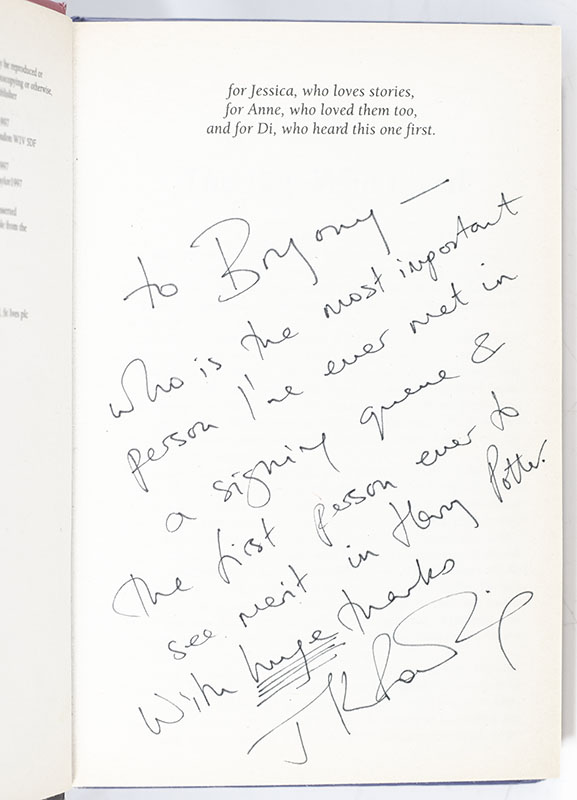 y be reproduced or
otocopying or otherwise,
1997
ndon W1V 5DF
1997
aylor 1997
asserted
ble from the
St Ives plc
for Jessica, who loves stories,
for Anne, who loved them too,
and for Di, who heard this one first.
to Bryony —
who is the most important
person I've ever met in
a signing queue &
the first person ever to
see merit in Harry Potter.
With huge thanks
J K Rowling